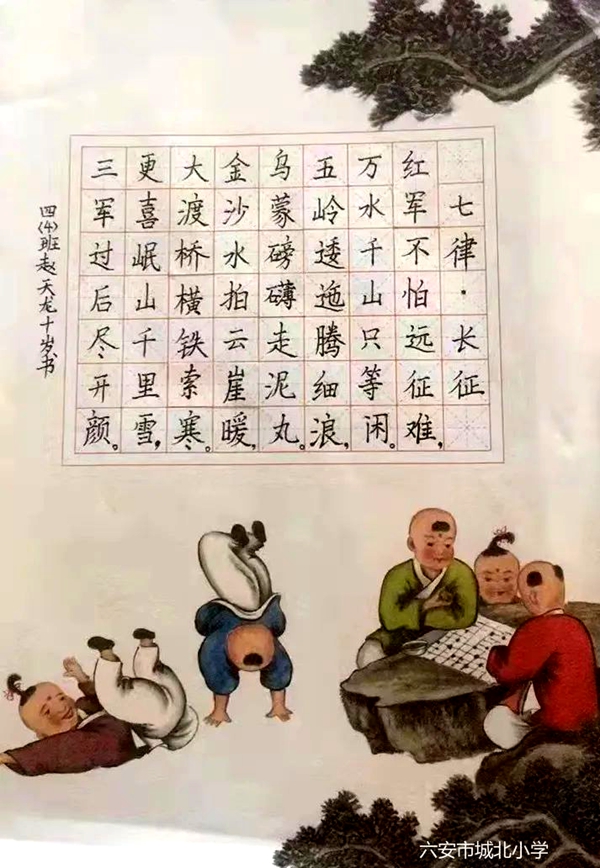 七律·长征
红军不怕远征难,
万水千山只等闲。
五岭逶迤腾细浪,
乌蒙磅礴走泥丸。
金沙水拍云崖暖,
大渡桥横铁索寒。
更喜岷山千里雪,
三军过后尽开颜。
四(4)班赵天龙十岁书
六安市城北小学